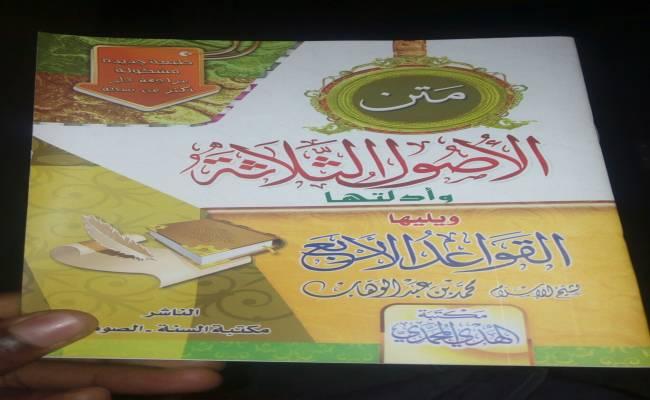 طبعة جديدة
مشكولة
مراجعة على
أكثر من نسخة
متن
الأصول الثلاثة
وأدلتها
ويليها
القواعد الأربع
لشيخ الإسلام محمد بن عبد الوهاب
الناشر
مكتبة السنة - الصو
مكتبة
الهدي المحمدي